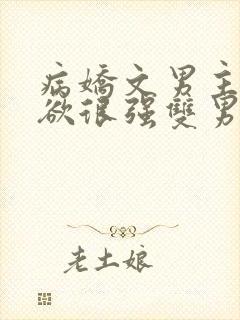 病嬌文男主
欲很强雙男
老土娘